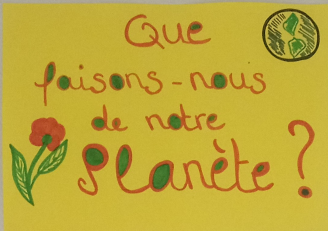 Que
faisons-nous
de notre
Planète ?